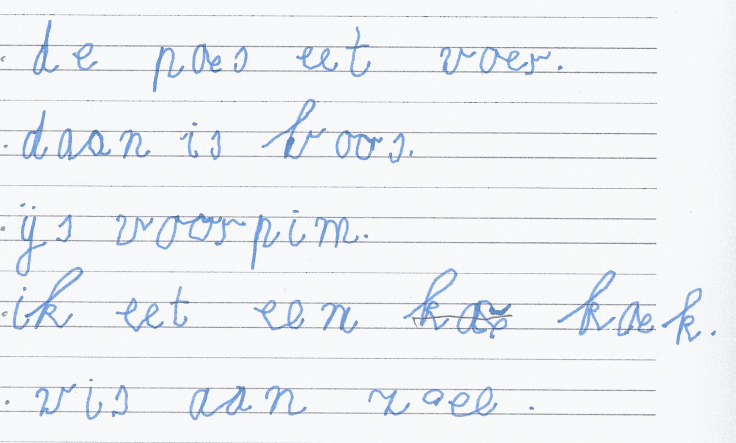 de poes eet voer.
daan is boos.
ijs voor pim.
ik eet een koek.
vis aan zee.